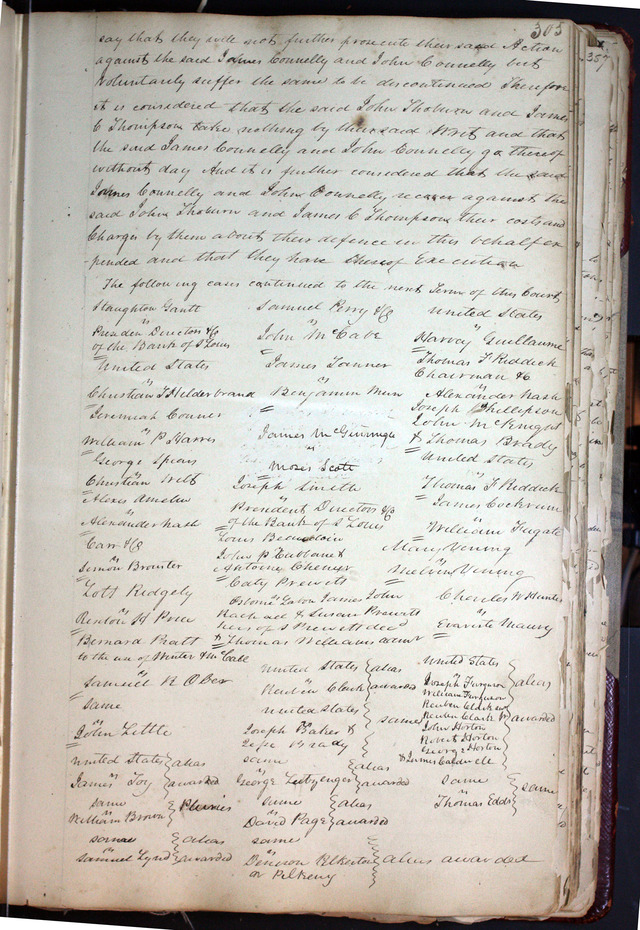 303
357
say that they will not further prosecute their said Action
against the said James Connelly and John Connelly but
Voluntarily suffer the same to be discontinued Therefore
it is considered that the said John Thoburn and James
C Thompson take nothing by their said Writ and that
the said James Connelly and John Connelly go thereof
without day And it is further considered that the said
James Connelly and John Connelly recover against the
said John Thoburn and James C Thompson their costs and
Charges by them about their defence in this behalf ex
pended and that they have thereof Execution
The following cases continued to the next Term of this Court
Staughton Gantt
vs
President Directors &c
of the Bank of St Louis
United States
vs
Christian T Helderbrand
Jeremiah Conner
vs
William P Harris
George Spears
vs
Christian Witt
Alexis Amelin
vs
Alexander Nash
Carr &c
vs
Simon Brouster
Lott Ridgely
vs
Renton H Price
Bernard Pratt
to the use of Winter & McCall
vs
Samuel R Ober
Same
vs
John Little
United States
vs alias
James Foy awarded
same
vs Pluries
William Brown
same
vs alias
Samuel Lynd awarded
Samuel Perry &c
vs
John McCabe
James Tanner
vs
Benjamin
James McGunnigle
vs
Moses Scott
Joseph Smith
vs
President Directors &c
of the Bank of St Louis
Louis Beaudoin
vs
John P Cubbane &
Antoine Chenier
Caty Prewett
vs
Osborne Eaton James John
Rachael & Susan Prewett
heirs of S Prewett decd
& Thomas Williams admr
United States
vs alias
Reuben Clark awarded
United States
vs same
Joseph Baker &
Jesse Brady
same
vs alias
George Leitzenger awarded
same
vs alias
David Page awarded
same
vs
Denison Pilkerton alias awarded
or Pilkeny
United States
vs
Harvey Guillaume
Thomas F Riddick
Chairman &c
vs
Alexander Nash
Joseph Phillipson
vs
John McKnight
& Thomas Brady
United States
vs
Thomas F Riddick
James Cockrum
vs
William Fugate
Mary Vening
vs
Vening
Charles W Hunter
vs
Evariste Maury
United States
vs
Joseph Ferguson alias
William Ferguson
Reuben Clark
Reuben Clark awarded
John Horton
Robert Horton
George Horton
& James Caldwell
same
vs same
Thomas Edds